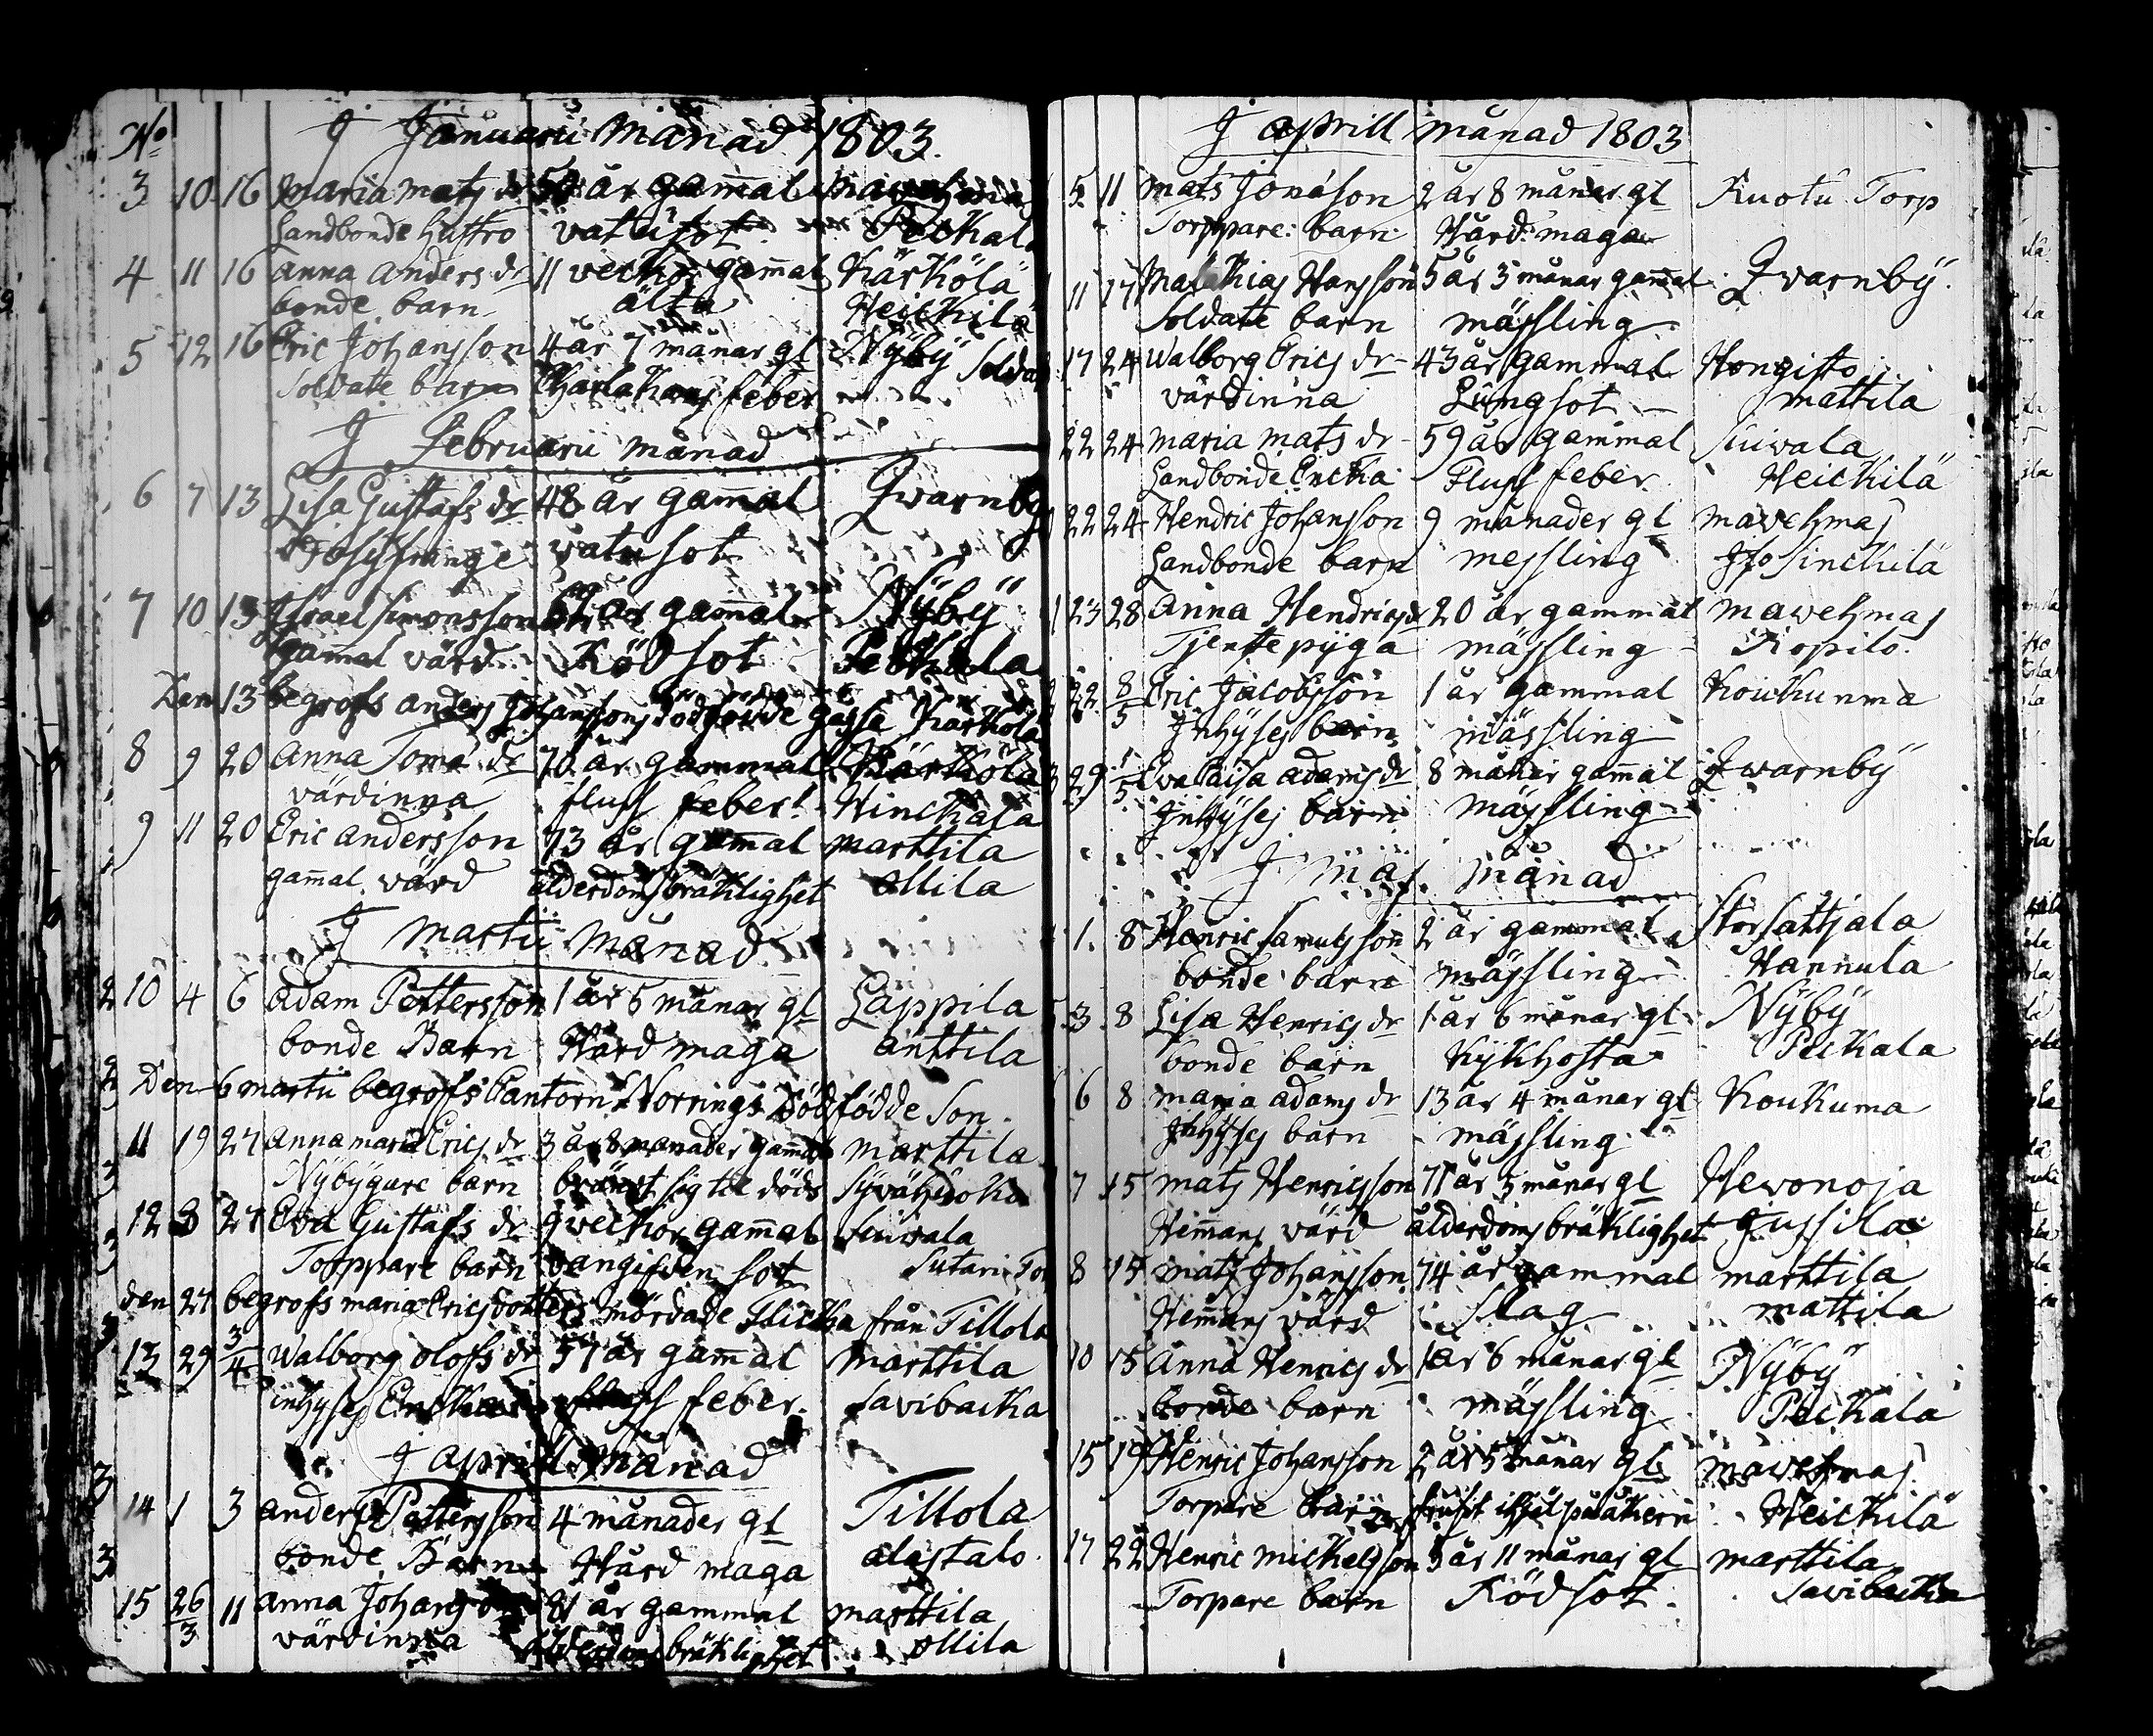 No
J Januarii Månad 1803.
3 10 16 Maria Mats dr 54 år gam̄al
Landbonde Hustro vatusot Peckala
4 11 16 Anna Anders dr 11 veckor gam̄al Kärköla
bonde barn älta Heickilä
5 12 16 Eric Johansson 4 år 7 månar gl Nÿbÿ Soldat
Soldate barn feber
J Februarii månad
6 7 13 Lisa Gustafs dr 48 år gam̄al Qvarnby
watusot
7 10 13 Israel Simonsson år gam̄al Nÿbÿ
gam̄al värd Rödsot Peckala
Den 13 begrofs Anders Johanssons dödfödde gåsse Kärköla
8 9 20 Anna Toma dr 70 år gammal Kärköla
värdinna fluss feber Hinckala
9 11 20 Eric Andersson 73 år gam̄al Marttila
gam̄al värd ålderdoms bräklighet Ollila
J Martii Månad
10 4 6 Adam Pettersson 1 år 5 månar gl Lappila
bonde Barn Hård maga Anttila
Den 6 martii begrofs Cantorn Norrings Dödfödde Son.
11 19 27 Anna Maria Erics dr 3 år 8 månader gam̄al Marttila
Nÿbÿgare barn bränt sig til döds
12 3 27 Eva Gustafs dr 9 veckor gam̄al Suivala
Torppare barn sot Sutari Tor
den 27 begrofs Maria Ericsdotters mördade Flicka från Tillola
13 29 3/4 Walborg Olofs dr 57 år gam̄al Marttila
inhyses Encka fluss feber. Savibacka
J April Månad
14 1 3 Anders Pettersson 4 månader gl Tillola
bonde Barn Hård maga Alastalo
15 26/3 11 Anna Johans dr 81 år gammal Marttila
värdinna ålderdoms bräklighet Ollila
J Aprill månad 1803
5 11 Mats Jonason 2 år 8 månar gl Kuotu Torp
Torppare barn Hård maga
11 17 Mathias Hansson 5 år 3 månar gammal Qvarnbÿ
Soldate barn mässling
17 24 Walborg Erics dr 43 år gammal Hongisto
värdinna Lungsot Mattila
22 24 Maria Mats dr 59 år gammal Suivala
Landbonde Encka Fluss feber Heickilä
22 24 Hendric Johansson 9 månader gl Mavehmas
Landbonde barn messling
23 28 Anna Hendrics dr 20 år gammal Mavehmas
Tjenste pÿga mässling Kopilo
22 8/5 Eric Jacobsson 1 år gammal Koukunma
Inhÿses barn mässling
29 1/5 Eva Caisa Adams dr 8 månar gam̄al Qvarnbÿ
Inhÿses barn mässling
J Maj månad
1 8 Henric Samuelsson 2 år gammal Storsattjala
bonde barn mässling Hannula
3 8 Lisa Henrics dr 1 år 6 månar gl Nÿbÿ
bonde barn Kykhosta Peckala
6 8 Maria Adams dr 13 år 4 månar gl Koukuma
Inhÿses barn mässling
7 15 Mats Henricsson 71 år 5 månar gl Hevonoja
Hem̄ans värd ålderdoms bräklighet Jussila
8 15 Mats Johansson 74 år gammal Marttila
Hem̄ans värd slag Mattila
10 15 Anna Henrics dr 1 år 6 månar gl Nÿbÿ
bonde barn mässling Peckala
15 19 Henric Johansson 2 år 5 månar gl Mavehmas
Torpare barn Heickilä
17 22 Henric Michelsson 5 år 11 månar gl Marttila
Torpare barn Rödsot Savibacka